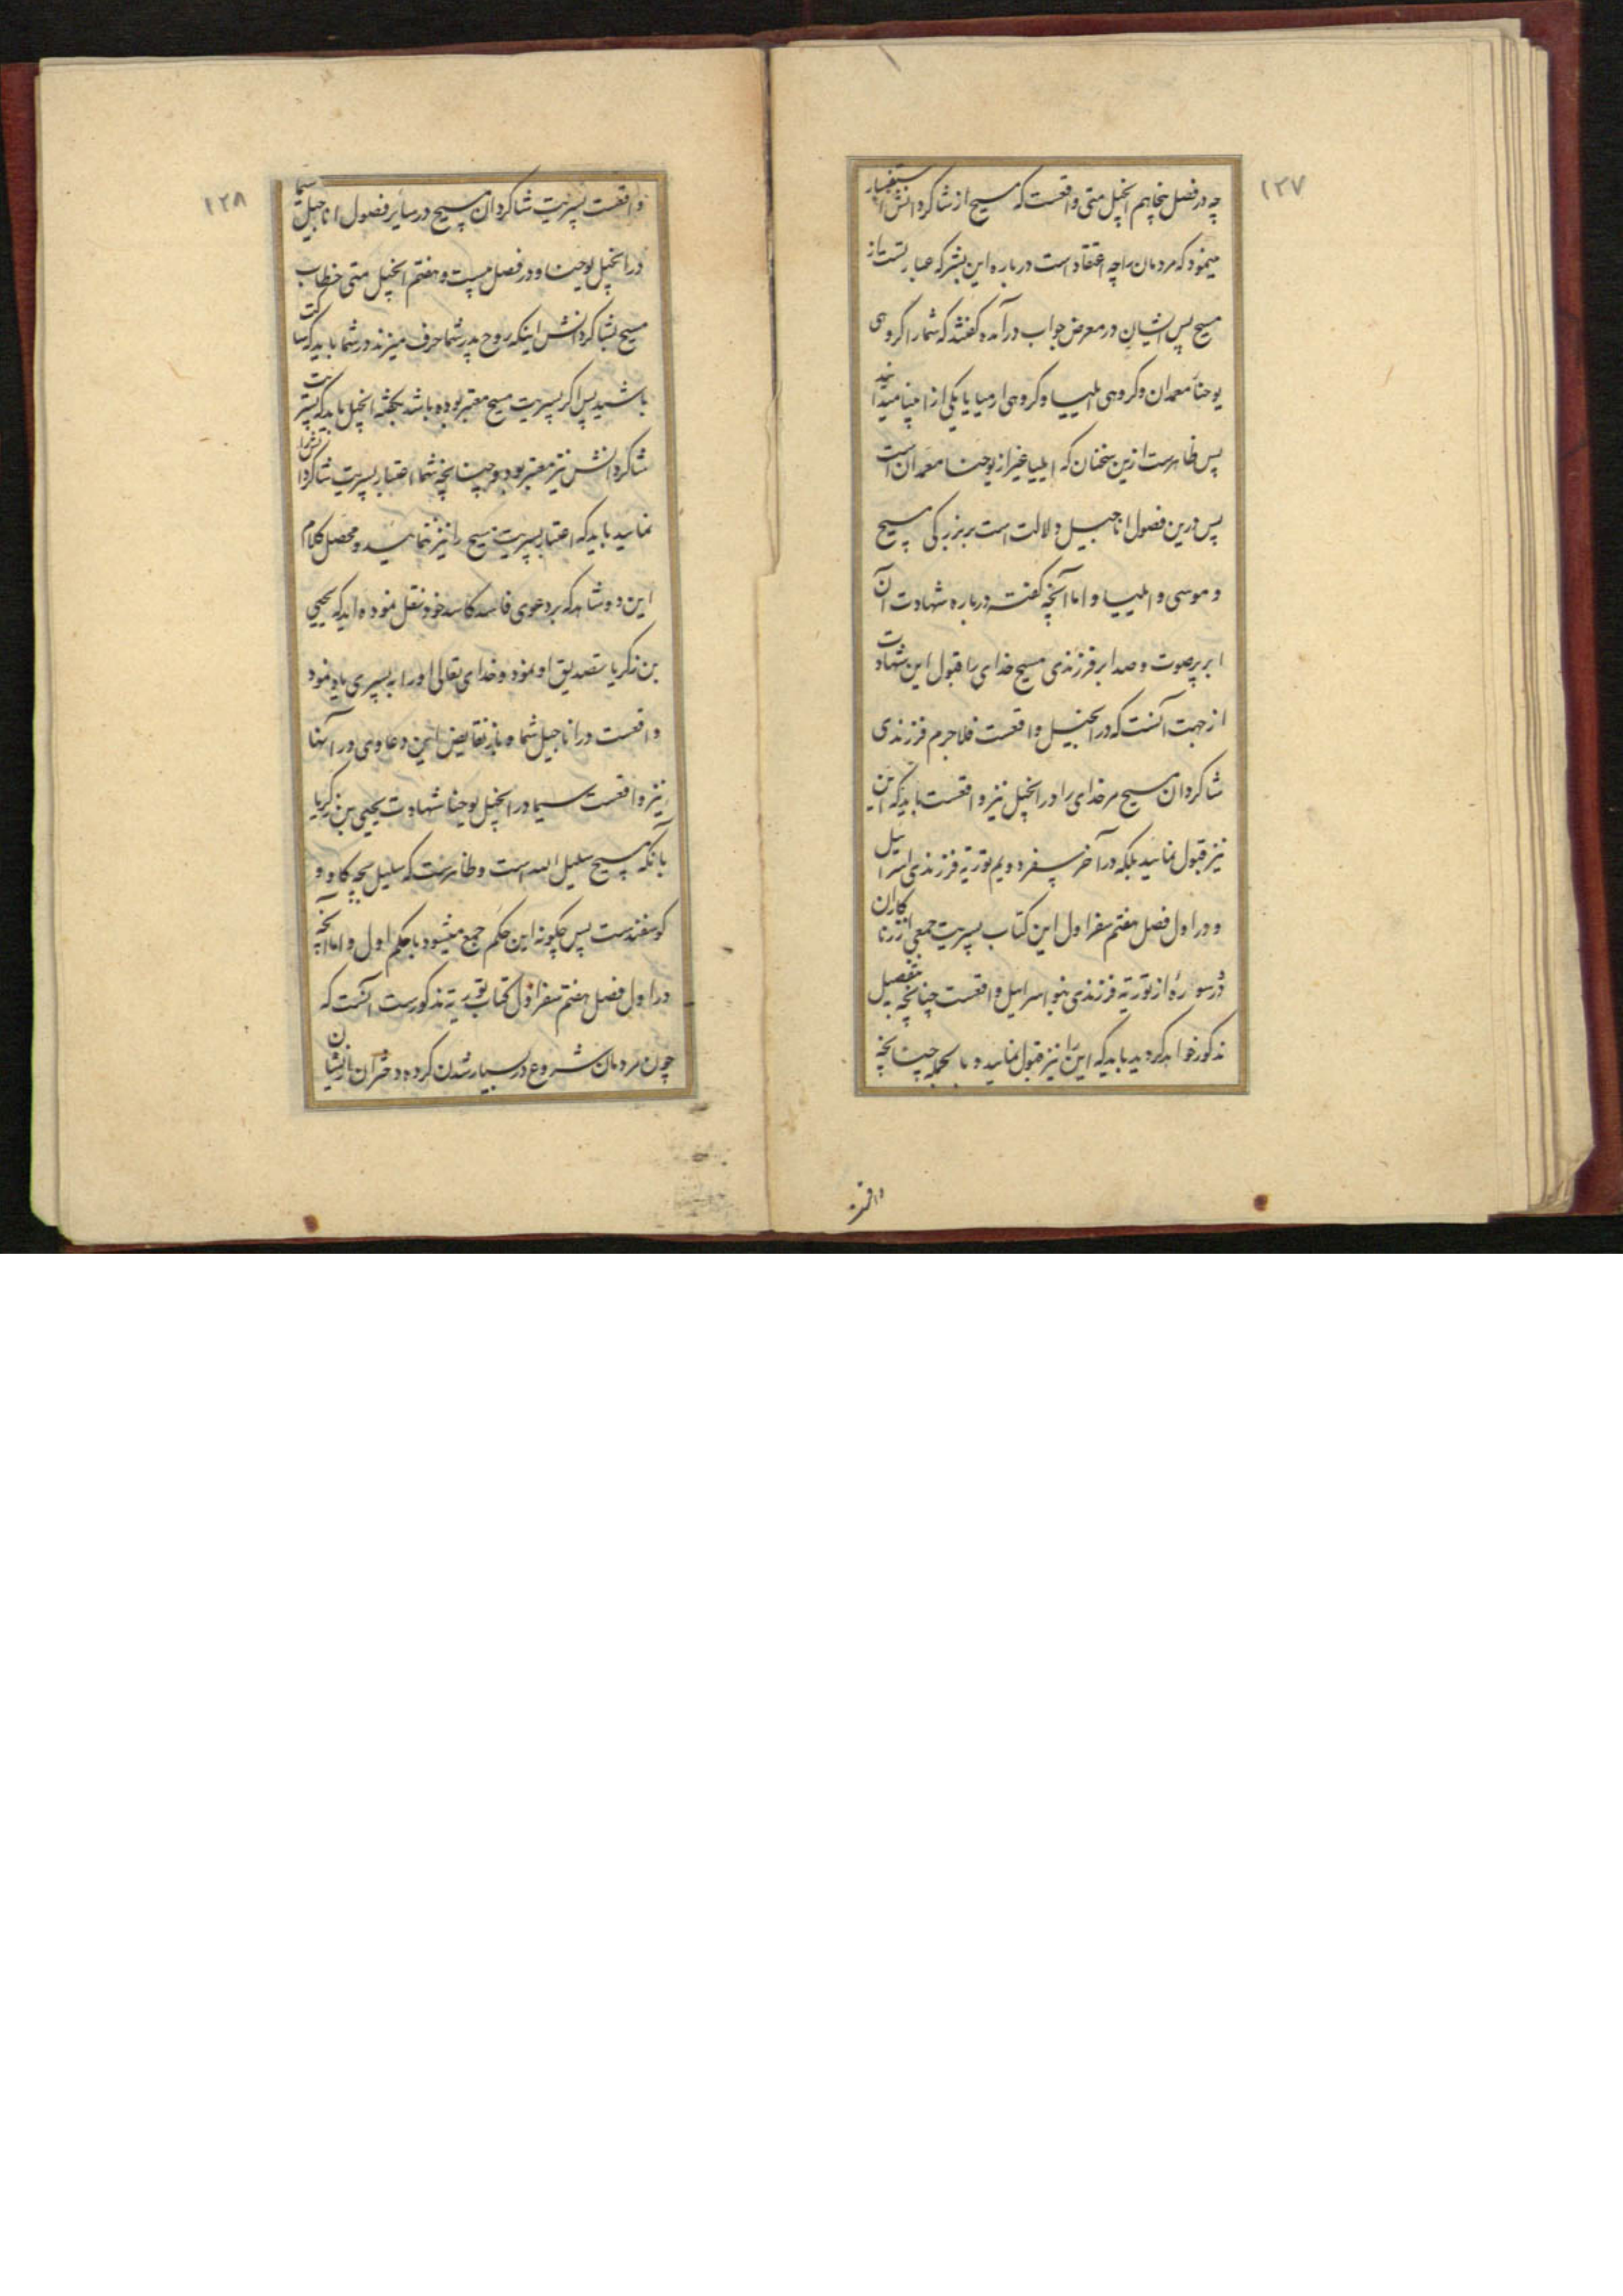 ١٢٧
چه در فصل پنجاهم انجیل متی واقعست که مسیح از شاکردانش استفسار
مینمود که مردمان را چه اعتقاد است درباره این بشر که عبارتست از
مسیح پس ایشان در معرض جواب درآمده کفتند که شما را کروهی
یوحنا معمدان و کروهی ایلیا و کروهی ارمیا یا یکی از انبیا میدانند
پس ظاهرست ازین سخنان که ایلیا غیر از یوحنا معمدان است
پس درین فصول اناجیل دلالت است بر بزرکی مسیح
و موسی و ایلیا و اما آنچه کفته درباره شهادت آن
ابر بر صوت و صدا بر فرزندی مسیح خدای را قبول این شهادت
از جهت آنست که در انجیل واقعست فلاجرم فرزندی
شاکردان مسیح مر خدای را در انجیل نیز واقعست باید که این
نیز قبول نمایید بلکه در آخر سفر دویم توریة فرزندی اسرائیل
و در اول فصل هفتم سفر اول این کتاب پسریت جمعی از زناکاران
و در سواره از توریة فرزندی بنو اسرائیل واقعست چنانچه بتفصیل
مذکور خواهد کردید باید که این را نیز قبول نمایید و بالجمله چنانچه
واقعست
١٢٨
واقعست پسریت شاکردان مسیح در سایر فصول اناجیل سیما
در انجیل یوحنا و در فصل بیست و هفتم انجیل متی خطاب
مسیح بشاکردانش اینکه روح پدر شما حرف میزند در شما باید که ساکت
باشید پس اکر پسریت مسیح معتبر بوده باشد بجهة انجیل باید که پسریت
شاکردانش نیز معتبر بود و چنانچه شما اعتبار پسریت شاکردانش را
نمایید باید که اعتبار پسریت مسیح را نیز ننمایید و محصل کلام
این دو شاهد که بر دعوی فاسد کاسد خود نقل نموده اید که یحیی
بن زکریا تصدیق او نمود و خدای تعالی او را به پسری یاد نمود
واقعست در اناجیل شما و باز نقایض این دعاوی در آنها
نیز واقعست سیما در انجیل یوحنا شهادت یحیی بن زکریا
بانکه مسیح سلیل الله است و ظاهرست که سلیل بچه کاو و
کوسفندست پس چکونه این حکم جمع میشود با حکم اول و اما آنچه
در اول فصل هفتم سفر اول کتاب توریة مذکورست آنست که
چون مردمان شروع در بسیار شدن کرده و دختران از ایشان